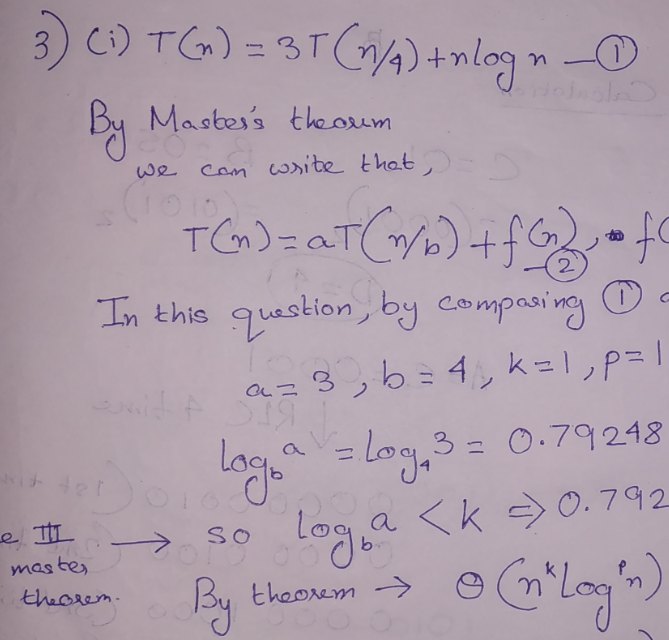 3) (i) T(n) = 3T(n/4) + nlog n — ①
By Master's theorem
we can write that,
T(n) = aT(n/b) + f(n), f(
— ②
In this question, by comparing ①
a = 3, b = 4, k = 1, p = 1
log_b a = log_4 3 = 0.79248
e III → so log_b a < k ⇒ 0.792
master
theorem. By theorem → Θ(n^k log^p n)